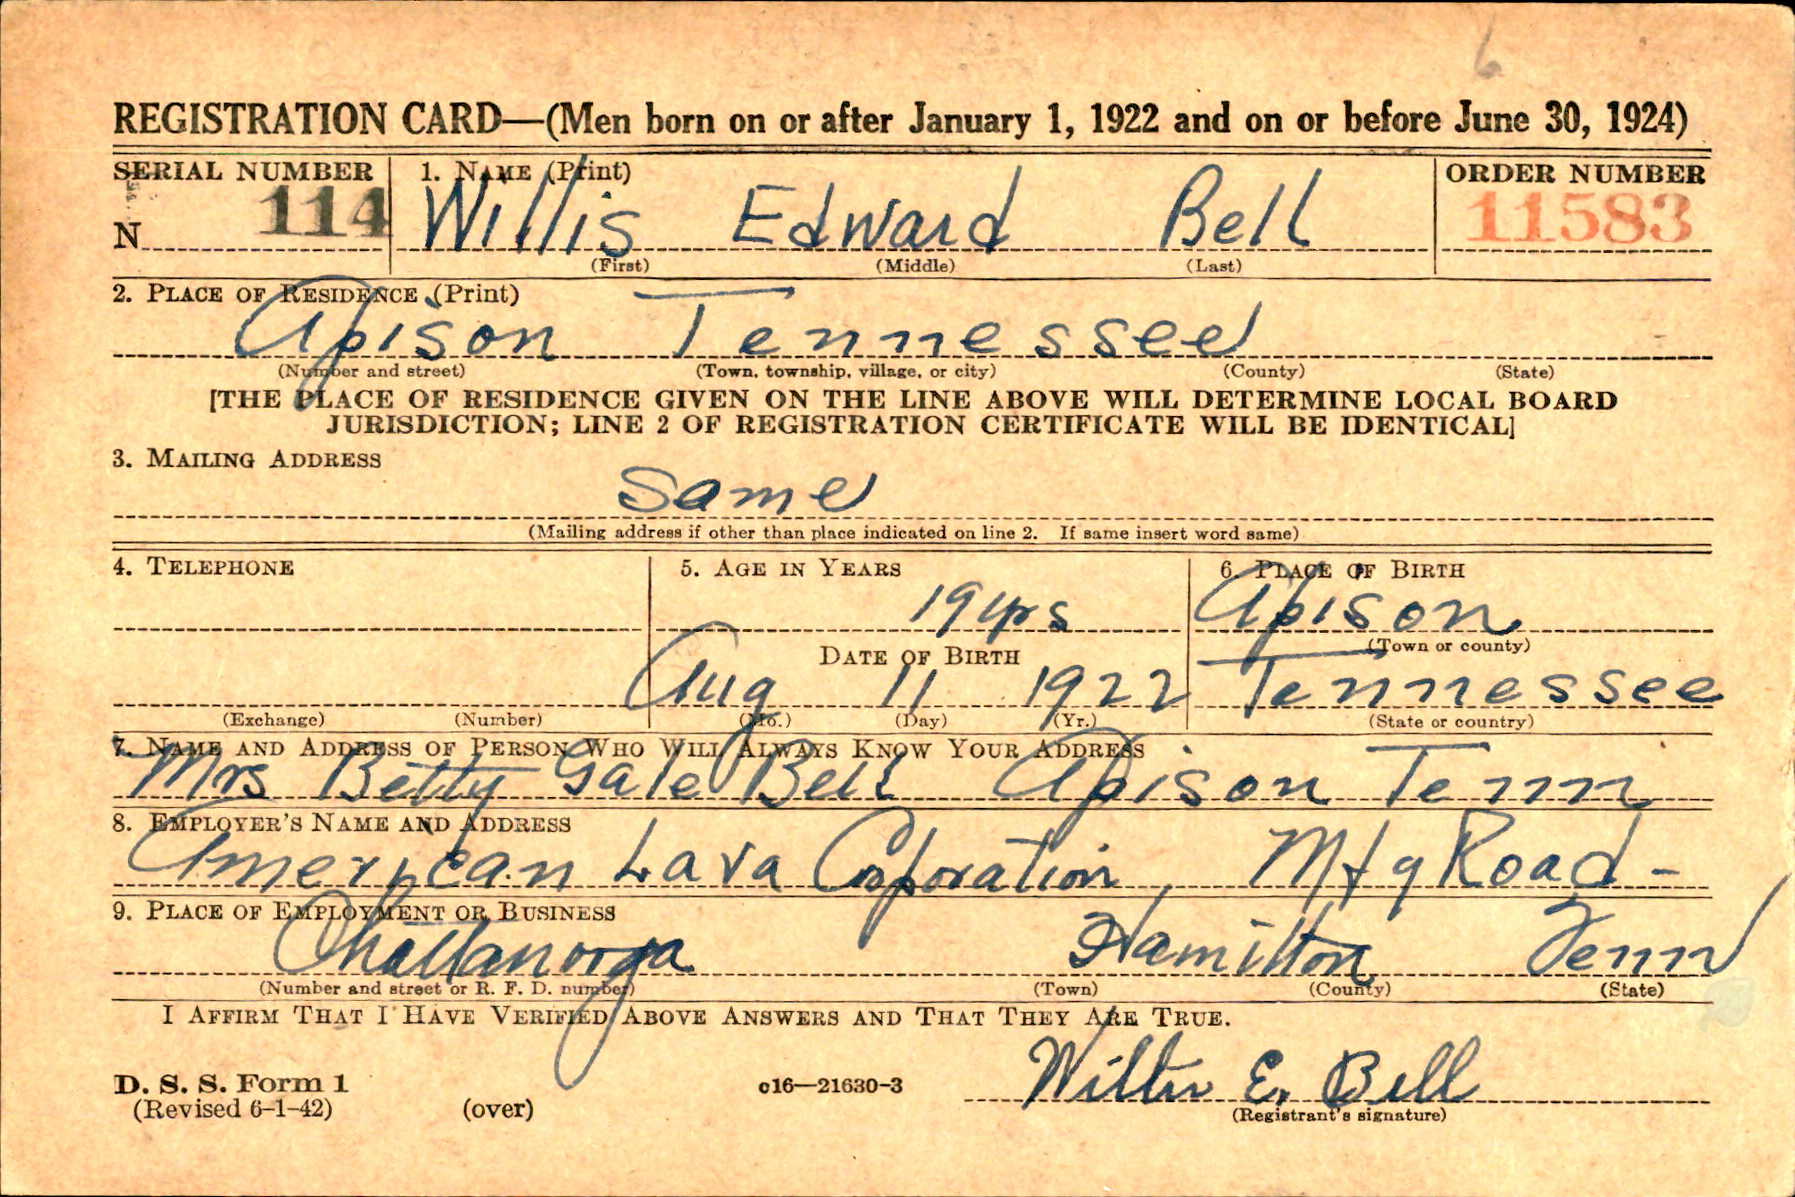 6
REGISTRATION CARD—(Men born on or after January 1, 1922 and on or before June 30, 1924)
SERIAL NUMBER 1. NAME (Print) ORDER NUMBER
N 114 Willis Edward Bell 11583
(First) (Middle) (Last)
2. PLACE OF RESIDENCE (Print)
Apison Tennessee
(Number and street) (Town, township, village, or city) (County) (State)
[THE PLACE OF RESIDENCE GIVEN ON THE LINE ABOVE WILL DETERMINE LOCAL BOARD
JURISDICTION; LINE 2 OF REGISTRATION CERTIFICATE WILL BE IDENTICAL]
3. MAILING ADDRESS
Same
(Mailing address if other than place indicated on line 2. If same insert word same)
4. TELEPHONE 5. AGE IN YEARS 6. PLACE OF BIRTH
19 yrs Apison
DATE OF BIRTH (Town or county)
Aug 11 1922 Tennessee
(Exchange) (Number) (Mo.) (Day) (Yr.) (State or country)
7. NAME AND ADDRESS OF PERSON WHO WILL ALWAYS KNOW YOUR ADDRESS
Mrs Betty Gale Bell Apison Tenn
8. EMPLOYER'S NAME AND ADDRESS
American Lava Corporation, Mfg Road-
9. PLACE OF EMPLOYMENT OR BUSINESS
Chattanooga Hamilton Tenn
(Number and street or R. F. D. number) (Town) (County) (State)
I AFFIRM THAT I HAVE VERIFIED ABOVE ANSWERS AND THAT THEY ARE TRUE.
D. S. S. Form 1 c16—21630-3 E. Bell
(Revised 6-1-42) (over) (Registrant's signature)